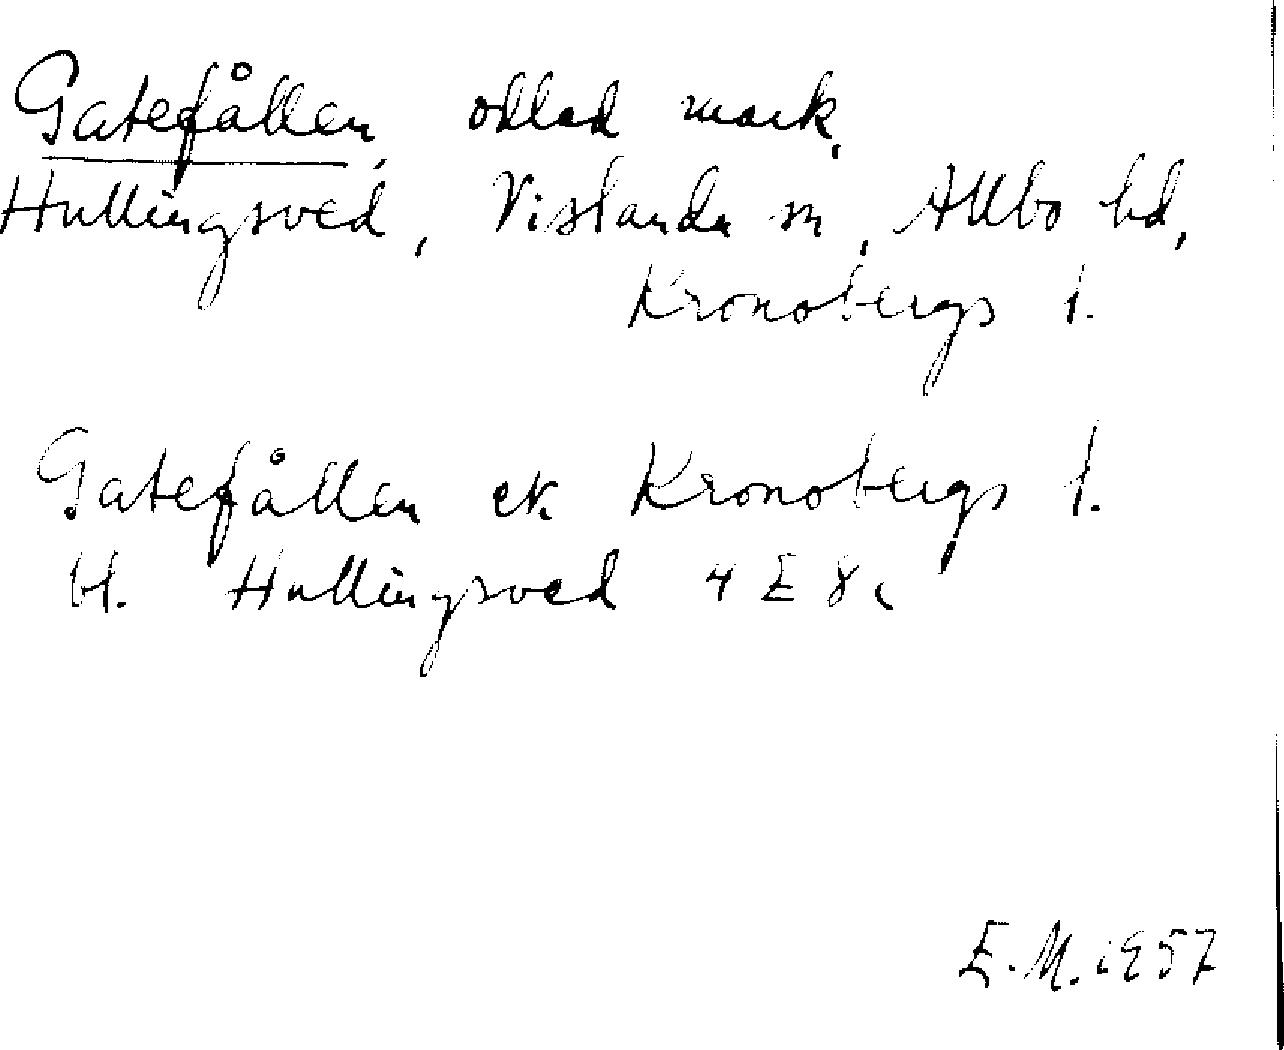 Gatefållen, odlad mark,
Hullingsved, Vislanda sn, Allbo hd,
Kronobergs l.
Gatefållen ek. Kronobergs l.
bl. Hullingsved 4 E 8c
E.M. 1957